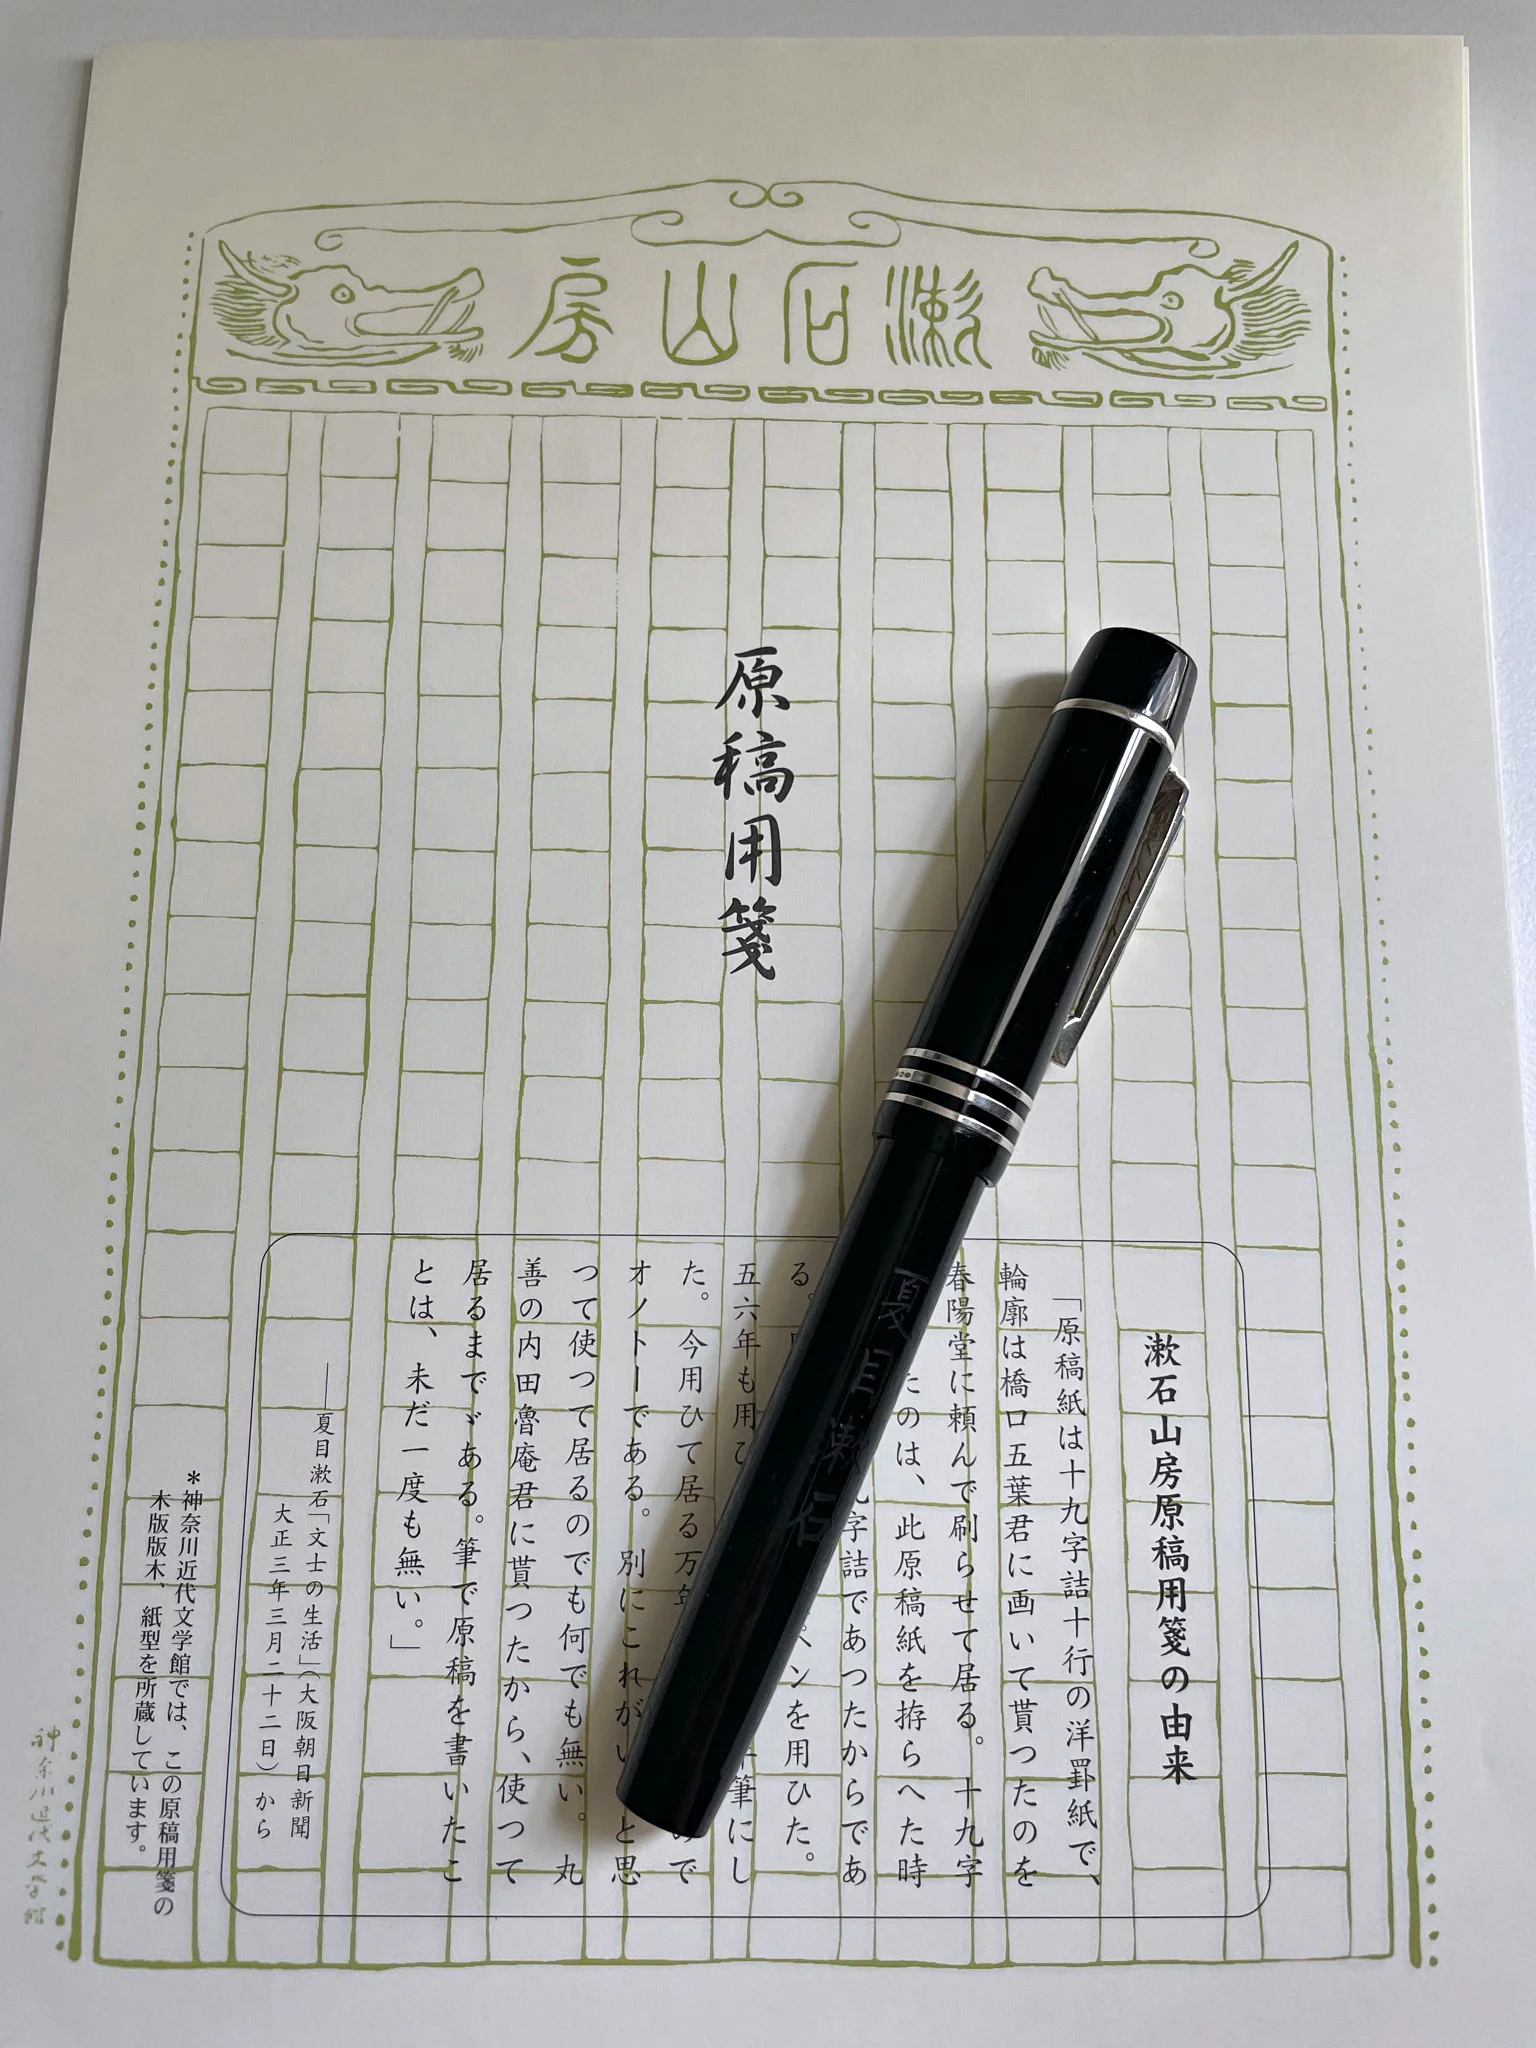 漱石山房
原稿用箋
漱石山房原稿用箋の由来
「原稿紙は十九字詰十行の洋罫紙で、
輪廓は橋口五葉君に画いて貰つたのを
春陽堂に頼んで刷らせて居る。十九字
たのは、此原稿紙を拵らへた時
字詰であつたからであ
る。 ペンを用ひた。
五六年も用ひ 筆にし
た。今用ひて居る万年 ので
オノトーである。別にこれがい と思
つて使つて居るのでも何でも無い。丸
善の内田魯庵君に貰つたから、使つて
居るまでゞある。筆で原稿を書いたこ
とは、未だ一度も無い。」
――夏目漱石「文士の生活」(大阪朝日新聞
大正三年三月二十二日)から
*神奈川近代文学館では、この原稿用箋の
木版版木、紙型を所蔵しています。
神奈川近代文学館
夏目漱石